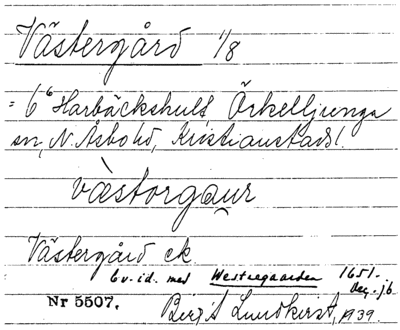 Västergård 1/8
= 6⁶ Harbäckshult Örkelljunga
sn, N. Åsbo hd, Kristianstads l.
væstorgaur
Västergård ek
Ev. id. med Westregaarden 1651.
dec. jb
Nr 5507. Birgit Lundkvist, 1939.